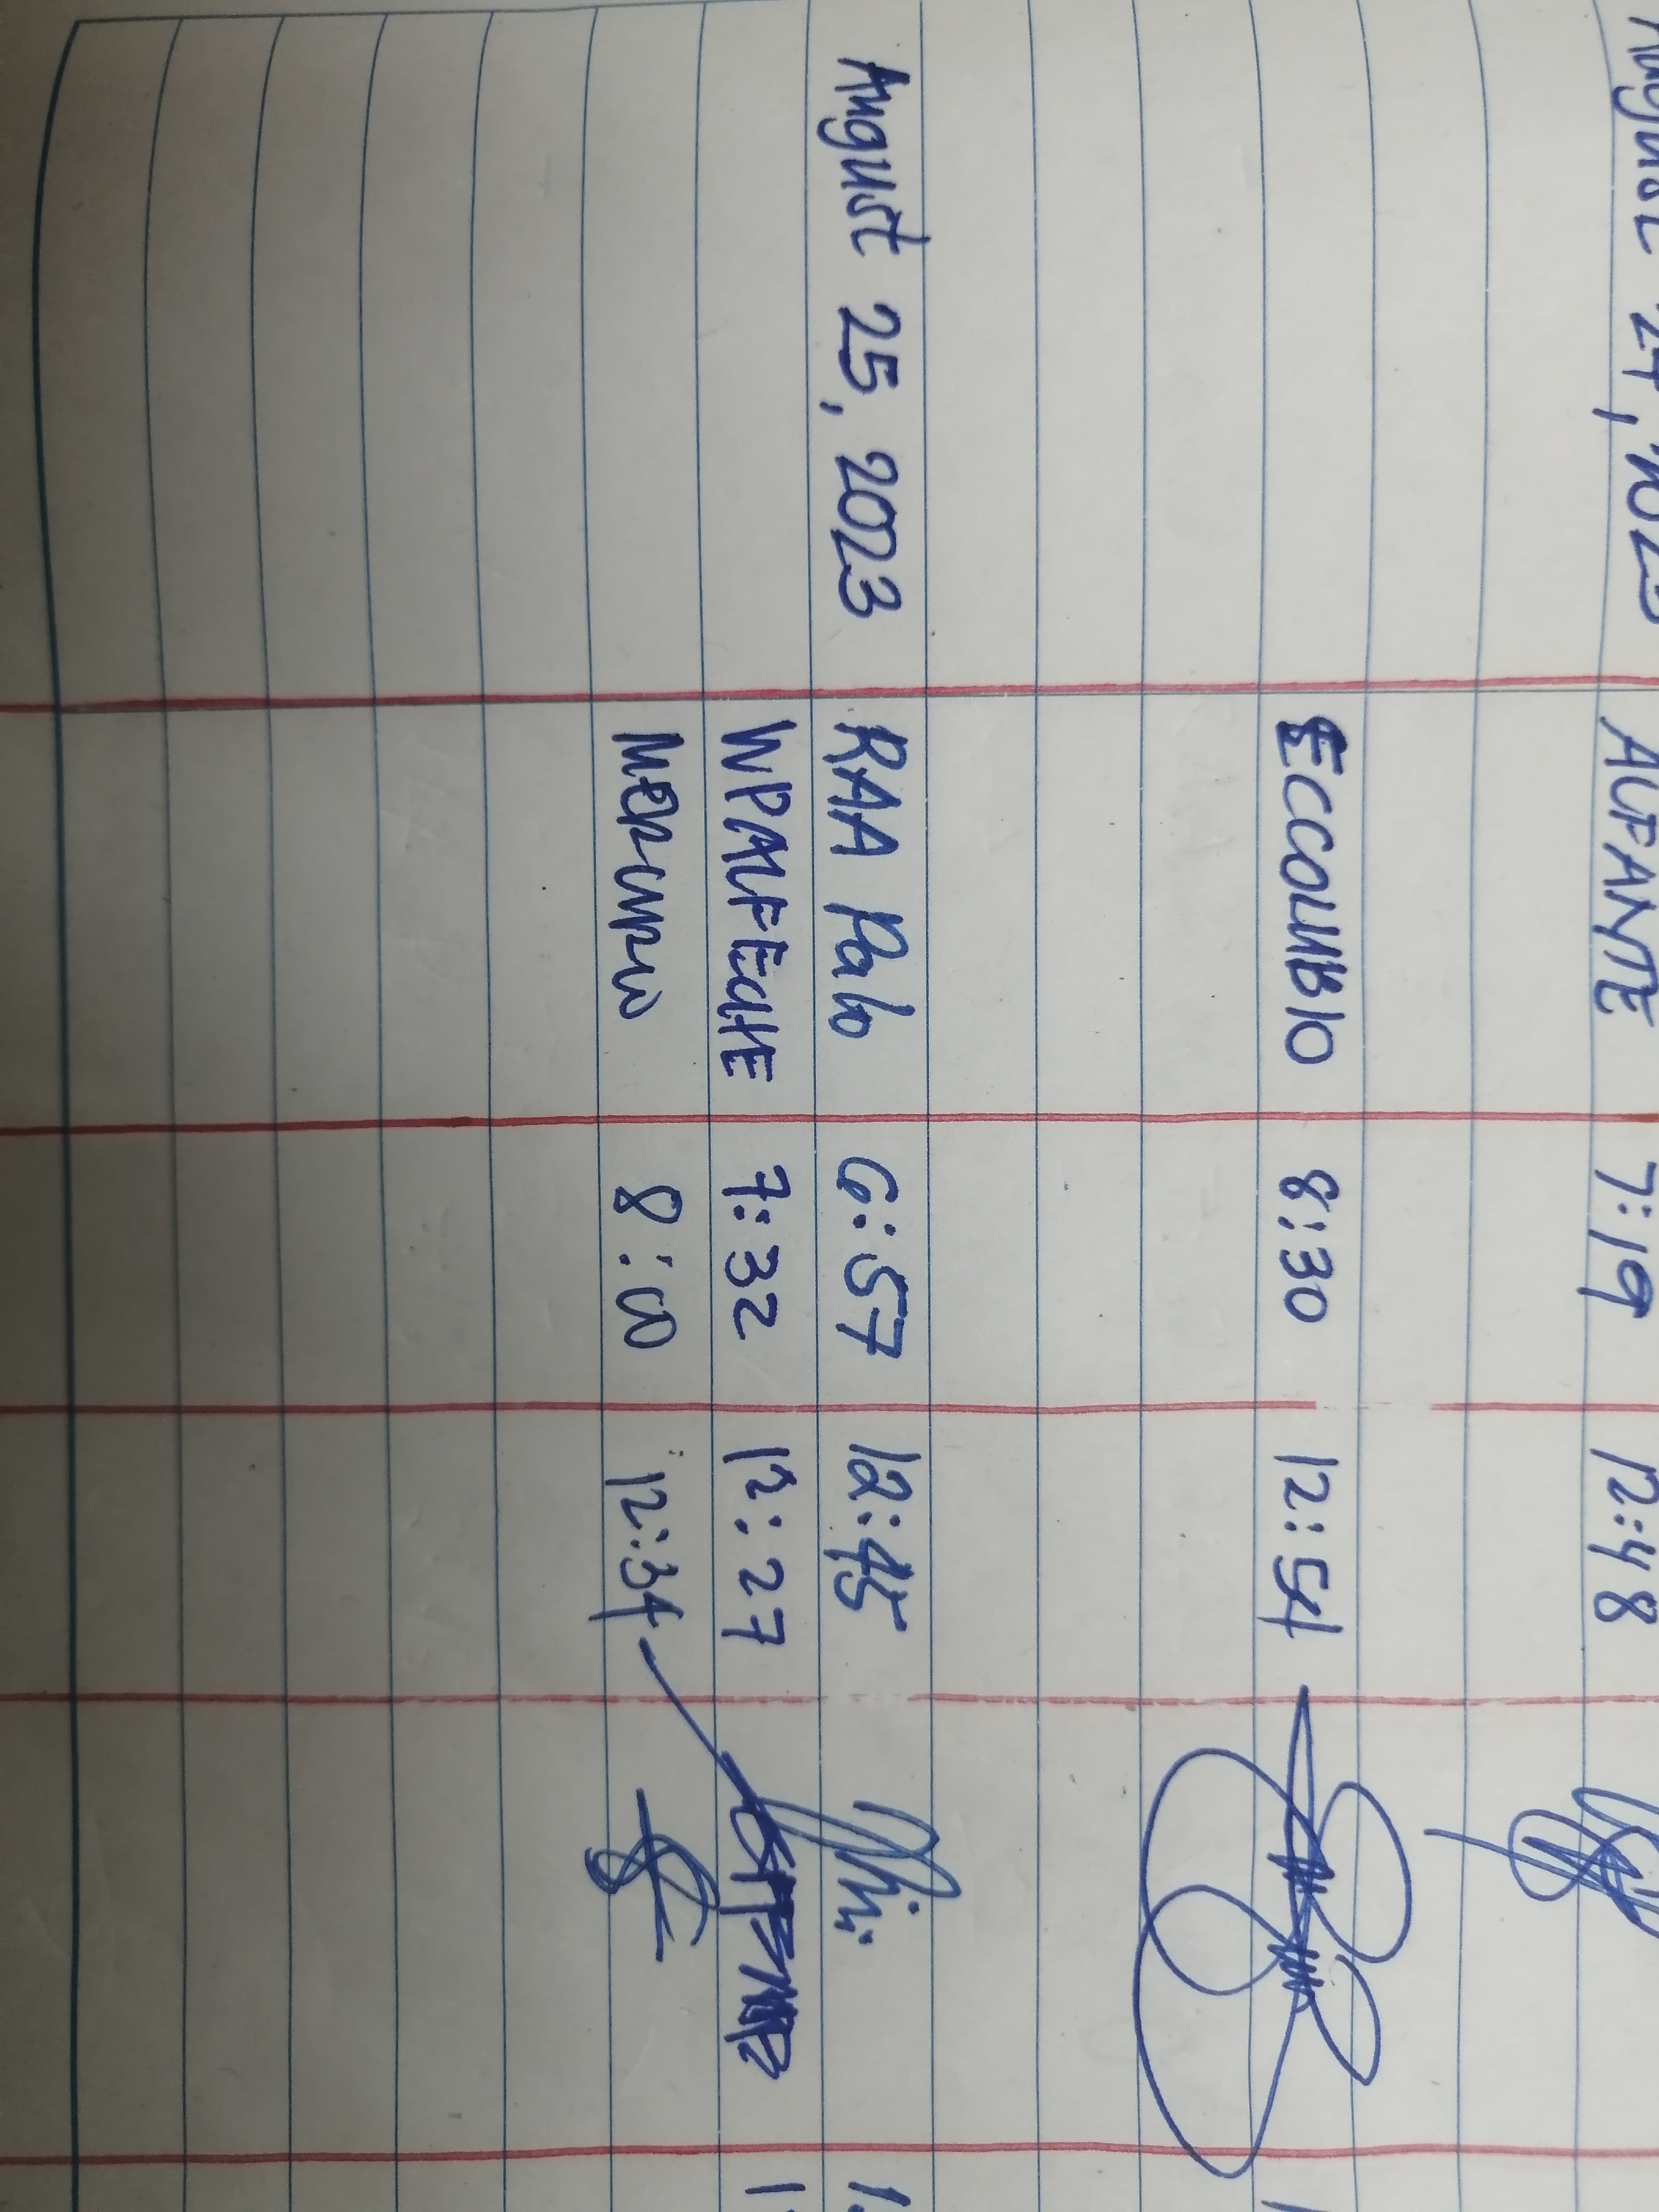 August 24, 2023 AUFANTE 7:19 12:48
ECCOLUBIO 8:30 12:54
August 25, 2023 RAA Palo 6:57 12:45
WPALFECHE 7:32 12:27
MERCURIO 8:00 12:34